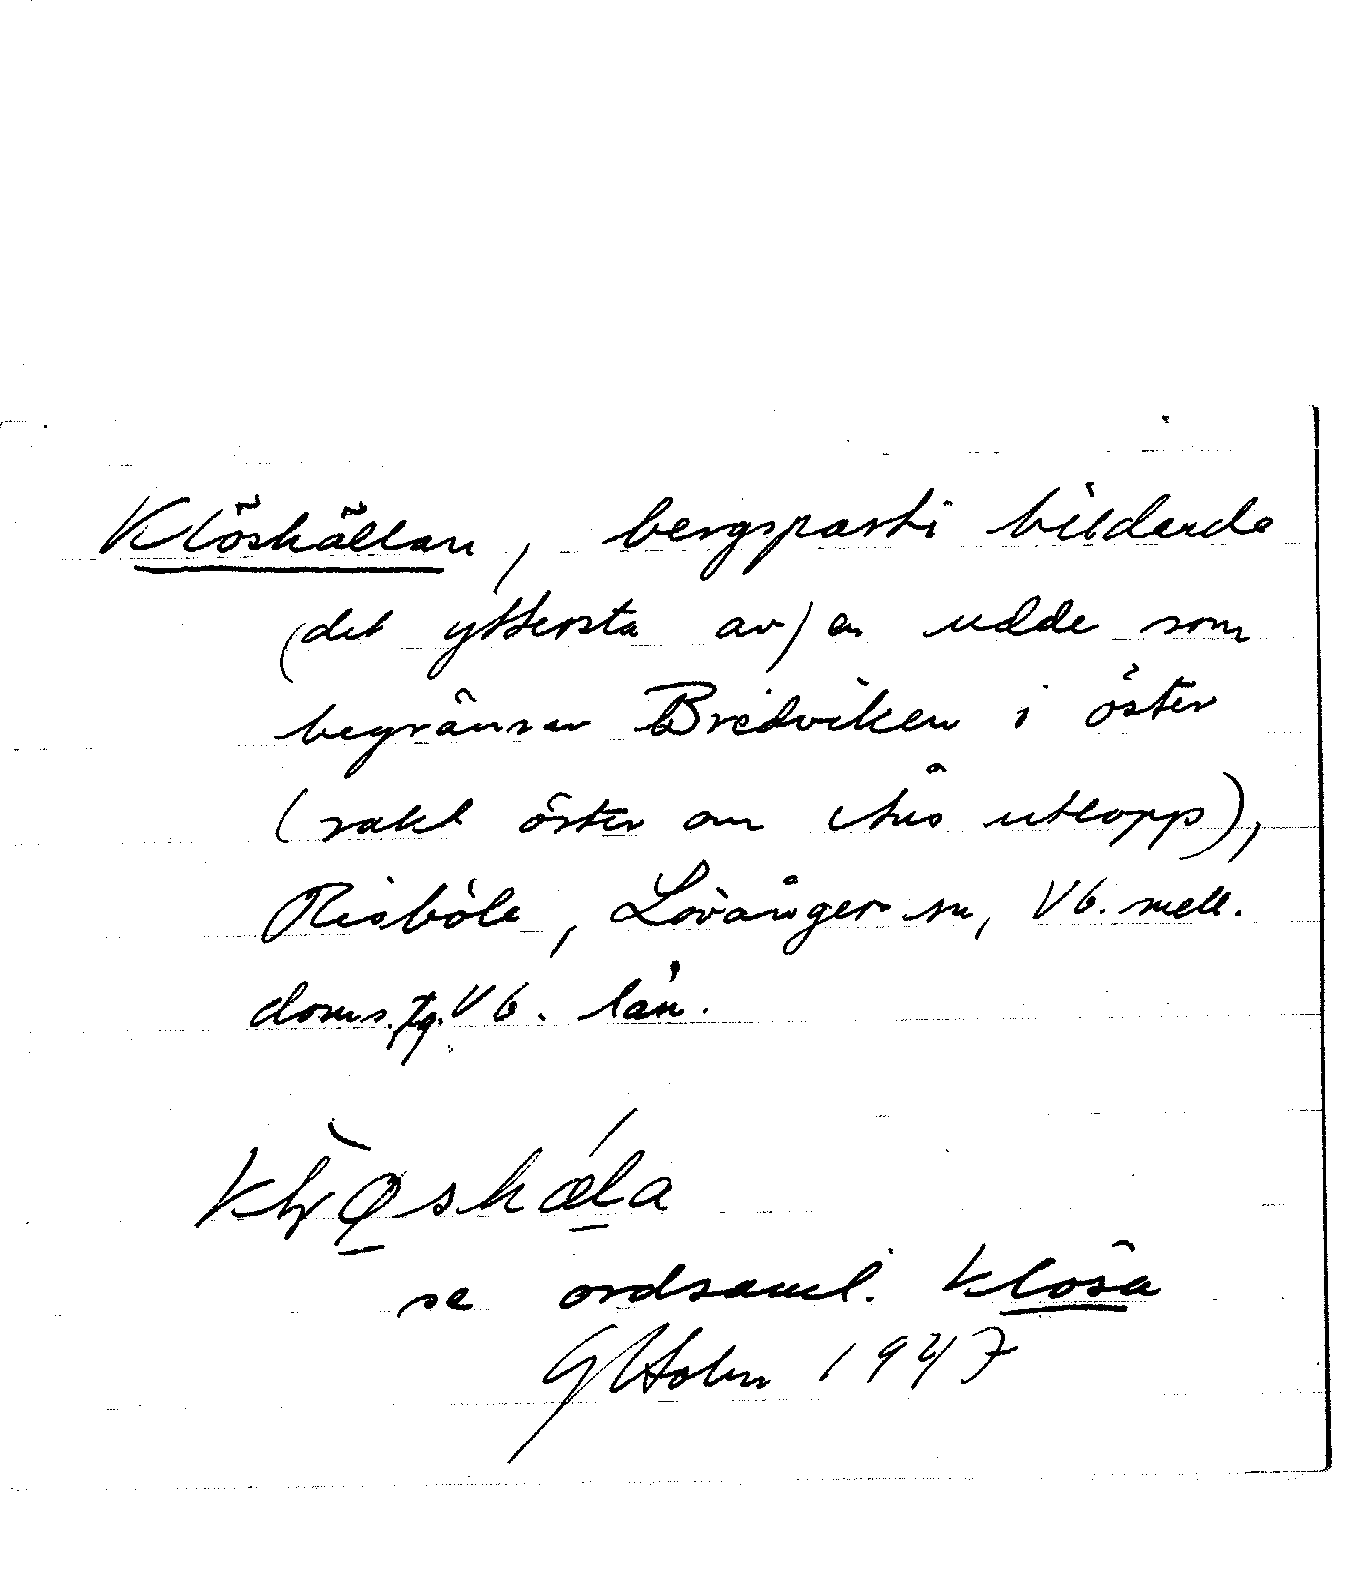 Klöshällan, bergsparti bildande
(det yttersta av) en udde som
begränsar Bredviken i öster
(rakt öster om Åns utlopp),
Risböle, Lövånger sn, Vb. mell.
doms.sg. Vb. län.
se ordsaml. klösa
G Holm 1947